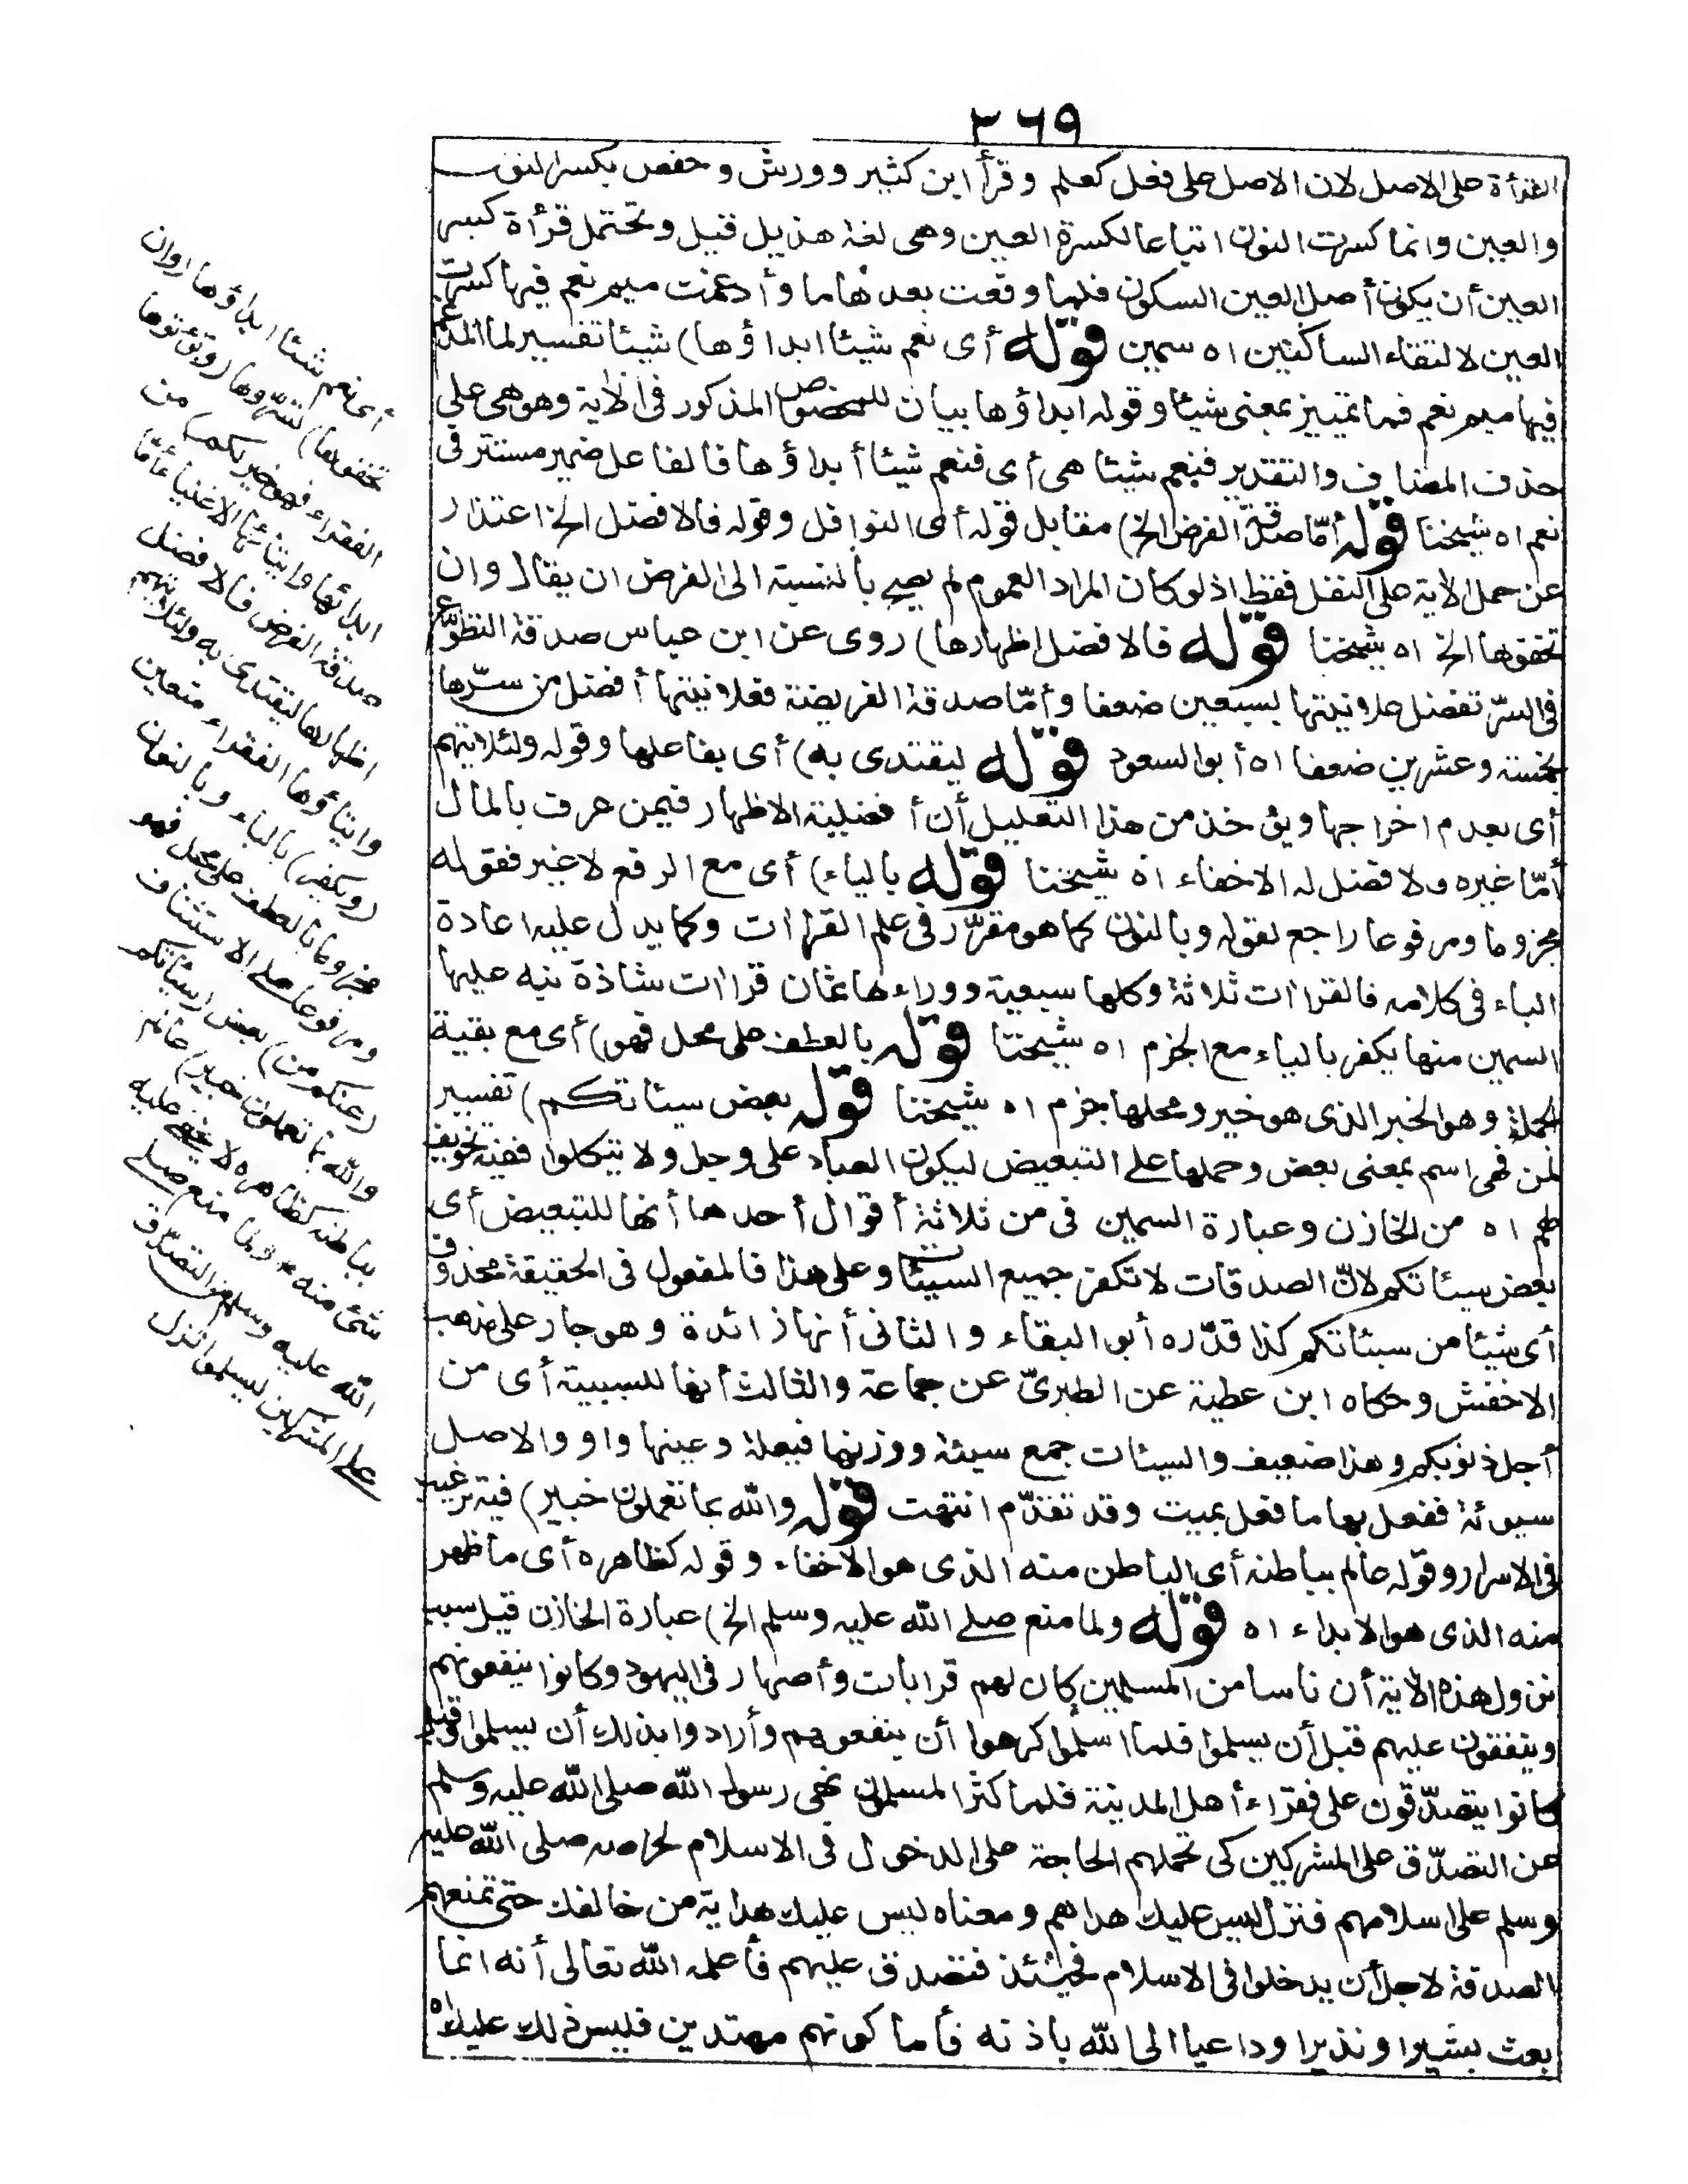 ٢٦٩
القرأة على الاصل لان الاصل على فعل كعلم وقرأ ابن كثير وورش وحفص بكسر النون
والعين وانما كسرت النون اتباعا لكسرة العين وهى لغة هذيل قيل وتحتمل قرأة كسر
العين أن يكون أصل العين السكون فلما وقعت بعدها ما وأدغمت ميم نعم فيها كسرت
العين لالتقاء الساكنين اه سمين قوله أى نعم شيئا ابداؤها) شيئا تفسير لما المدغم
فيها ميم نعم فما تمييز بمعنى شيئا وقوله ابداؤها بيان للمخصوص المذكور فى الآية وهو هى على
حذف المضاف والتقدير فنعم شيئا هى أى فنعم شيئا أبداؤها فالفاعل ضمير مستتر فى
نعم اه شيخنا قوله أمّا صدقة الفرض الخ) مقابل قوله أى النوافل وقوله فالافضل الخ اعتذار
عن حمل الآية على النفل فقط اذ لو كان المراد العموم لم يصح بالنسبة الى الفرض ان يقال وان
تخفوها الخ اه شيخنا قوله فالافضل اظهارها) روى عن ابن عباس صدقة التطوّع
فى السرّ تفضل علانيتها بسبعين ضعفا وأمّا صدقة الفريضة فعلانيتها أفضل من سرّها
بخمسة وعشرين ضعفا اه أبو السعود قوله ليقتدى به) أى بفاعلها وقوله ولئلا يتهم
أى بعدم اخراجها ويؤخذ من هذا التعليل أن أفضلية الاظهار فيمن عرف بالمال
أمّا غيره ولا فضل له الاخفاء اه شيخنا قوله بالياء) أى مع الرفع لاغير فقوله
مجزوما ومرفوعا راجع لقوله وبالنون كما هو مقرّر فى علم القراات وكما يدل عليه اعادة
الباء فى كلامه فالقراات ثلاثة وكلها سبعية ووراءها ثمان قراات شاذة نبه عليها
السمين منها يكفر بالياء مع الجزم اه شيخنا قوله بالعطف على محل فهو) أى مع بقية
الجملة وهو الخبر الذى هو خير ومحلها جزم اه شيخنا قوله بعض سيئاتكم) تفسير
لمن فهى اسم بمعنى بعض وحملها على التبعيض ليكون العباد على وجل ولا يتكلوا ففيه تخويف
لهم اه من الخازن وعبارة السمين فى من ثلاثة أقوال أحدها أنها للتبعيض أى
بعض سيئاتكم لانّ الصدقات لا تكفر جميع السيئات وعلى هذا فالمفعول فى الحقيقة محذوف
أى شيئا من سيئاتكم كذا قدّره أبو البقاء والثانى أنها زائدة وهو جار على مذهب
الاخفش وحكاه ابن عطية عن الطبرىّ عن جماعة والثالث أنها للسببية أى من
أجل ذنوبكم وهذا ضعيف والسيئات جمع سيئة ووزنها فيعلة وعينها واو والاصل
سيوئة ففعل بها ما فعل بميت وقد تقدّم انتهت قوله والله بما تعملون خبير) فيه ترغيب
فى الاسرار وقوله عالم بباطنه أى الباطن منه الذى هو الاخفاء وقوله كظاهره أى ما ظهر
منه الذى هو الابداء اه قوله ولما منع صلى الله عليه وسلم الخ) عبارة الخازن قيل سبب
نزول هذه الآية أن ناسا من المسلمين كان لهم قرابات وأصهار فى اليهود وكانوا ينفعونهم
وينفقون عليهم قبل أن يسلموا فلما اسلموا كرهوا أن ينفعوهم وأرادوا بذلك أن يسلموا وقيل
كانوا يتصدّقون على فقراء أهل المدينة فلما كثر المسلمون نهى رسول الله صلى الله عليه وسلم
عن التصدّق على المشركين كى تحملهم الحاجة على الدخول فى الاسلام لحرصه صلى الله عليه
وسلم على اسلامهم فنزل ليس عليك هداهم ومعناه ليس عليك هداية من خالفك حتى تمنعهم
الصدقة لاجل أن يدخلوا فى الاسلام فحينئذ فتصدق عليهم فأعلمه الله تعالى أنه انما
بعث بشيرا ونذيرا وداعيا الى الله باذنه فأما كونهم مهتدين فليس ذلك عليك اه
أى نعم شيئا ابداؤها (وان
تخفوها) تسرّوها (وتؤتوها
الفقراء فهو خير لكم) من
ابدائها وايتائها الاغنياء أمّا
صدقة الفرض فالافضل
اظهارها ليقتدى به ولئلا يتهم
وايتاؤها الفقراء متعين
(ويكفر) بالياء وبالنون
مجزوما بالعطف على محل فهو
ومرفوعا على الاستئناف
(عنكم من) بعض (سيئاتكم
والله بما تعملون خبير) عالم
بباطنه كظاهره لا يخفى عليه
شئ منه * ولما منع صلى
الله عليه وسلم من التصدّق
على المشركين ليسلموا نزل